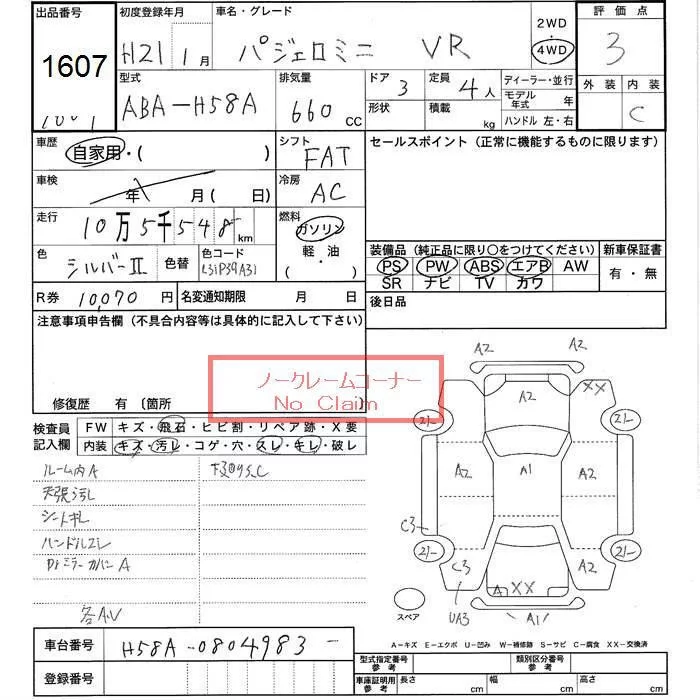 出品番号 初度登録年月 車名・グレード 2WD 評価点
1607 H21 1月 パジェロミニ VR 4WD 3
型式 排気量 ドア 3 定員 4人 ディーラー・並行 外装 内装
ABA-H58A 660 CC 形状 積載 kg モデル年式 年 C
ハンドル 左・右
車歴 自家用・( ) シフト FAT セールスポイント(正常に機能するものに限ります)
車検 年 月( 日) 冷房 AC
走行 10万5千548 km 燃料 ガソリン
軽・油
・( )
色 シルバーII 色替 色コード 装備品(純正品に限り〇をつけてください) 新車保証書
PS PW ABS エアB AW 有・無
SR ナビ TV カワ
R券 10,070円 名変通知期限 月 日 後日品
注意事項申告欄(不具合内容等は具体的に記入して下さい)
ノークレームコーナー
No Claim
修復歴 有 〔箇所
検査員記入欄 FW キズ・飛石・ヒビ割・リペア跡・X要
内装 キズ・汚レ・コゲ・穴・スレ・キレ・破レ
ルーム内A
天張汚レ
シートキレ
ハンドルスレ
Drミラーカバー A
各AU
A2 A2
A2 XX
21- 21-
A2 A1 A2
C3
21- 21-
C3 A2
A XX
UA3 A1
スペア
車台番号 H58A-0804983-
登録番号
A-キズ E-エクボ U-凹み W-補修跡 S-サビ C-腐食 XX-交換済
型式指定番号 参考 類別区分番号 参考
車庫証明用 参考 長さ cm 幅 cm 高さ cm